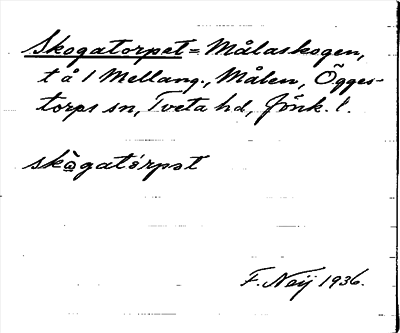 Skogatorpet = Målaskogen,
t å 1 Mellang., Målen, Ögges-
torps sn, Tveta hd, Jönk. l.
skògató̀rpət
F. Neij 1936.